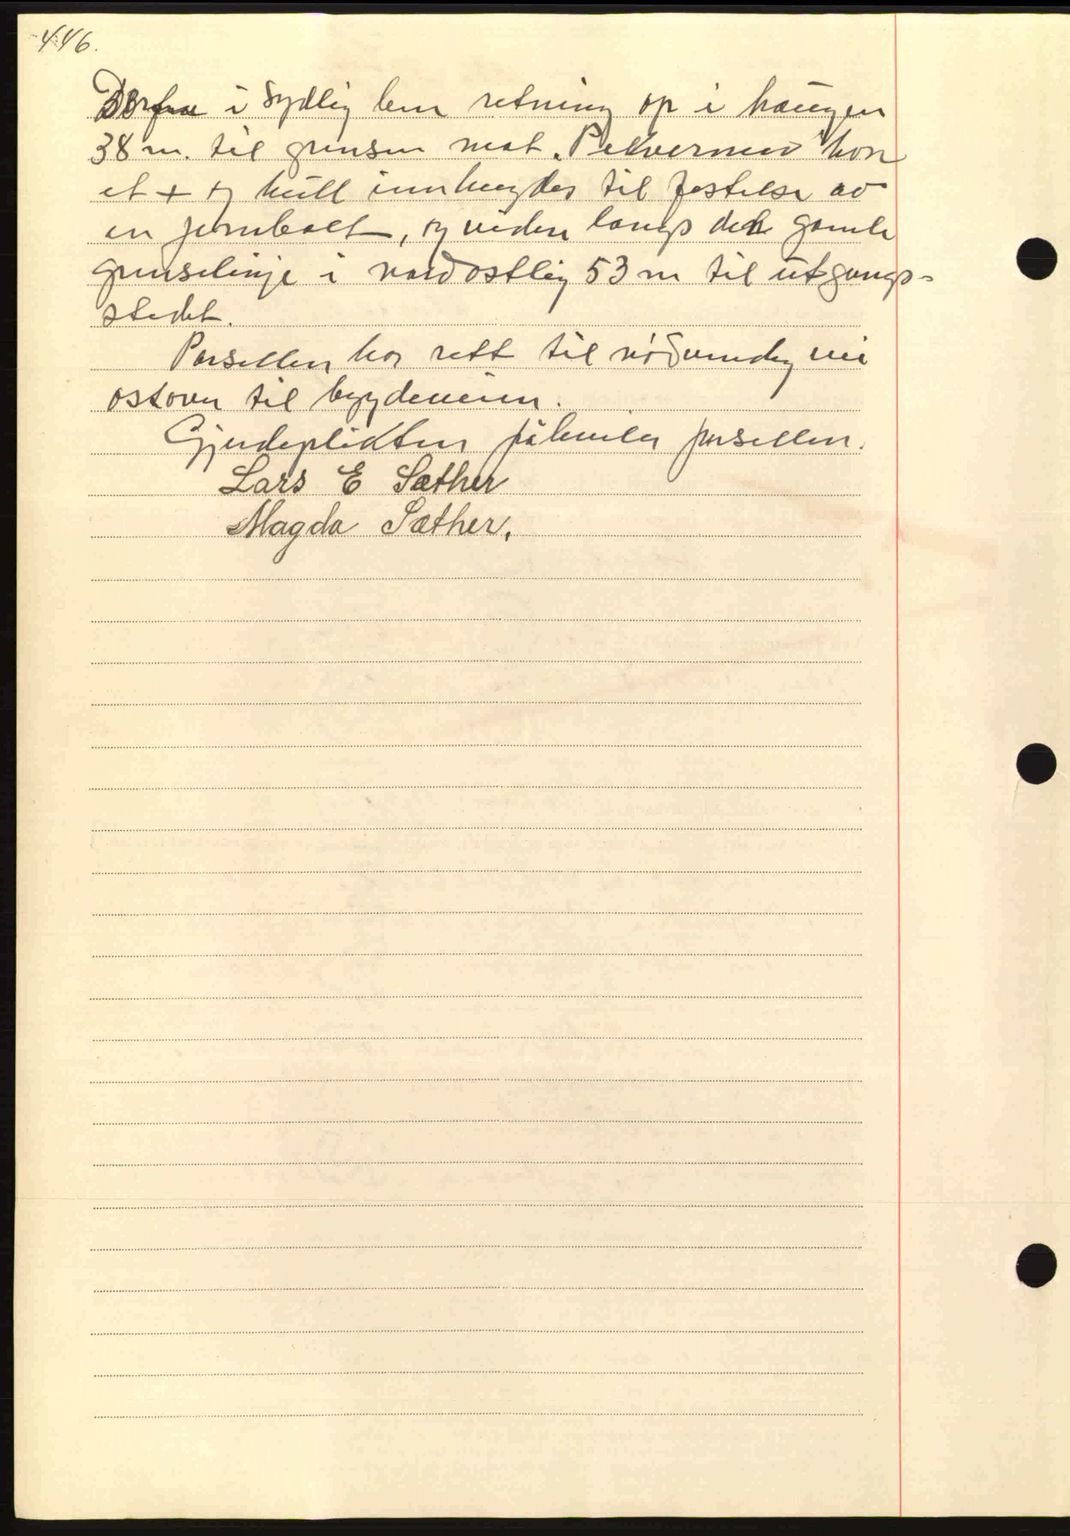 446.
Derfra i sydlig lem retning op i haugen
38 m. til grensen mot "Pelvernes" hvor
et + og hull innhugges til festelse av
en jernbolt, og videre langs den gamle
grenselinje i nordostlig 53 m til utgangs-
stedet.
Parsellen har rett til nödvendig vei
ostover til bygdeveien.
Gjerdeplikten påhviler parsellen.
Lars E Sæther
Magda Sæther.